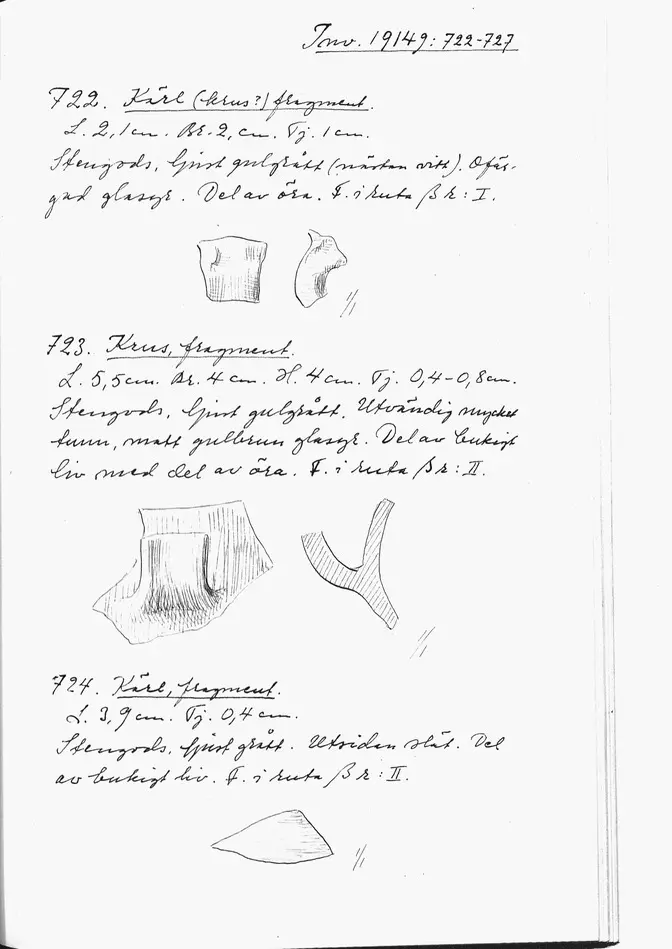 Inv. 19149: 722-727
722. Kärl (krus?) fragment.
L. 2,1cm. Br. 2, cm. Tj. 1cm.
Stengods, ljust gulgrått (nästan vitt). Ofär-
gad glasyr. Del av öra. F. i ruta β r: I.
1/1
723. Krus, fragment.
L. 5,5cm. Br. 4 cm. H. 4 cm. Tj. 0,4-0,8cm.
Stengods, ljust gulgrått. Utvändig mycket
tunn, matt gulbrun glasyr. Del av bukigt
liv med del av öra. F. i ruta β r: II.
1/1
724. Kärl, fragment.
L. 3,9cm. Tj. 0,4cm.
Stengods, ljust grått. Utsidan slät. Del
av bukigt liv. F. i ruta β r: II.
1/1